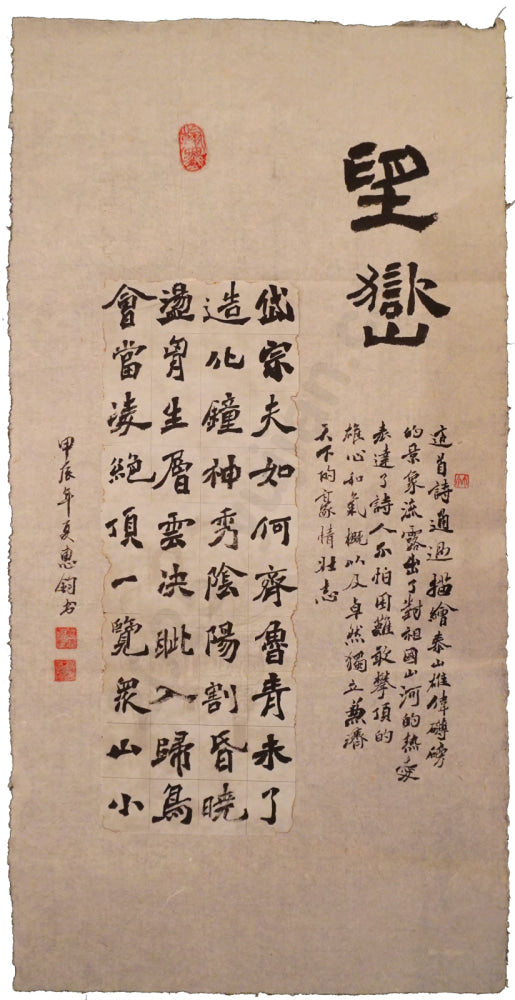 望嶽
這首詩通過描繪泰山雄偉礴磅
的景象流露出了對祖國山河的熱愛
表達了詩人不怕困難敢攀頂的
雄心和氣概以及卓然獨立兼濟
天下的豪情壯志
岱宗夫如何齊魯青未了
造化鐘神秀陰陽割昏曉
盪胷生層雲決眦入歸鳥
會當凌絕頂一覽眾山小
甲辰年夏惠鈞書